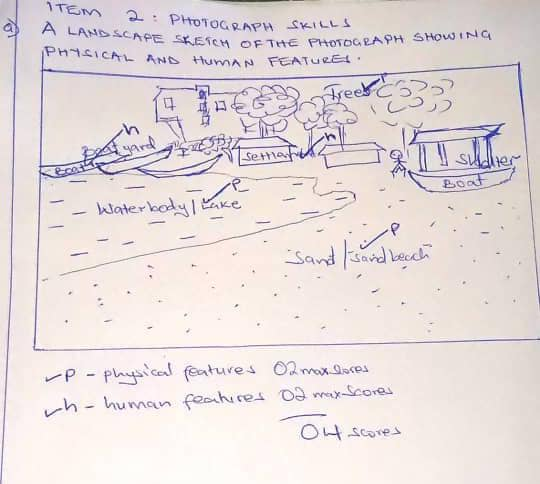 ITEM 2: PHOTOGRAPH SKILLS
a) A LANDSCAPE SKETCH OF THE PHOTOGRAPH SHOWING
PHYSICAL AND HUMAN FEATURES.
Trees P
h
Boat yard
Boat
h
Settlement
Shelter
Boat
P
Waterbody/Lake
P
Sand/Sand beach
P - physical features 02 max scores
h - human features 02 max scores
04 scores